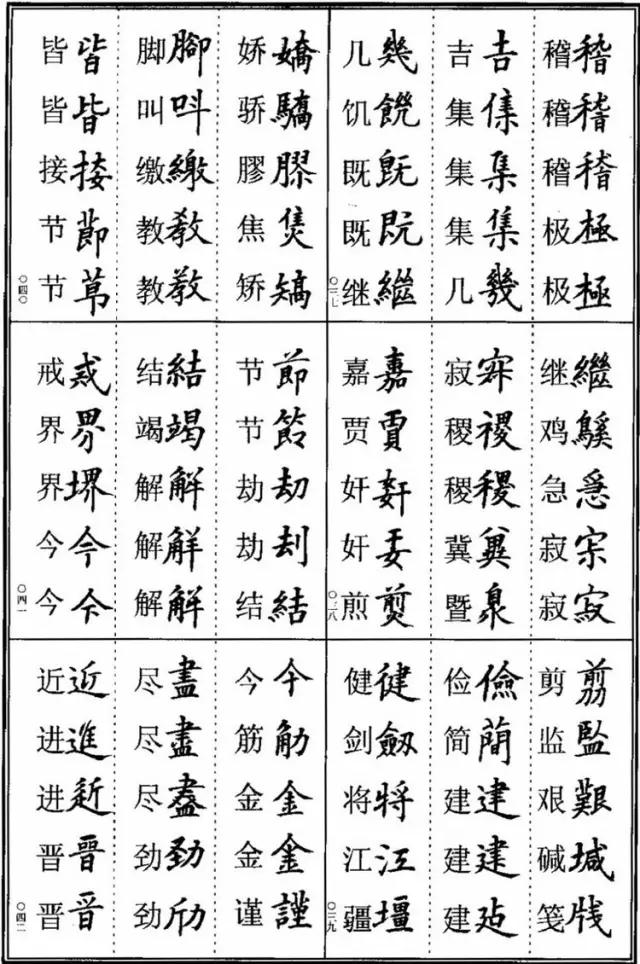 稽稽 稽稽 稽稽 极極 极極
吉吉 集 集集 集集 几幾
几幾 饥饑 既旣 既既 继繼
〇三七
继繼 鸡鷄 急急 寂 寂寂
寂 稷 稷稷 冀冀 暨
嘉嘉 贾賈 奸姧 奸 煎煎
〇三八
剪剪 监監 艰艱 碱堿 笺牋
俭儉 简簡 建建 建建 建
健健 剑劔 将将 江江 疆壃
〇三九
娇嬌 骄驕 膠膠 焦 矫矯
脚腳 叫呌 缴繳 教敎 教教
皆皆 皆皆 接接 节節 节
〇四〇
节節 节節 劫劫 劫刦 结結
结結 竭竭 解解 解觧 解解
戒戒 界界 界堺 今今 今今
〇四一
今今 筋 金金 金金 谨謹
尽盡 尽盡 尽盡 劲勁 劲
近近 进進 进 晋晉 晋晋
〇四二